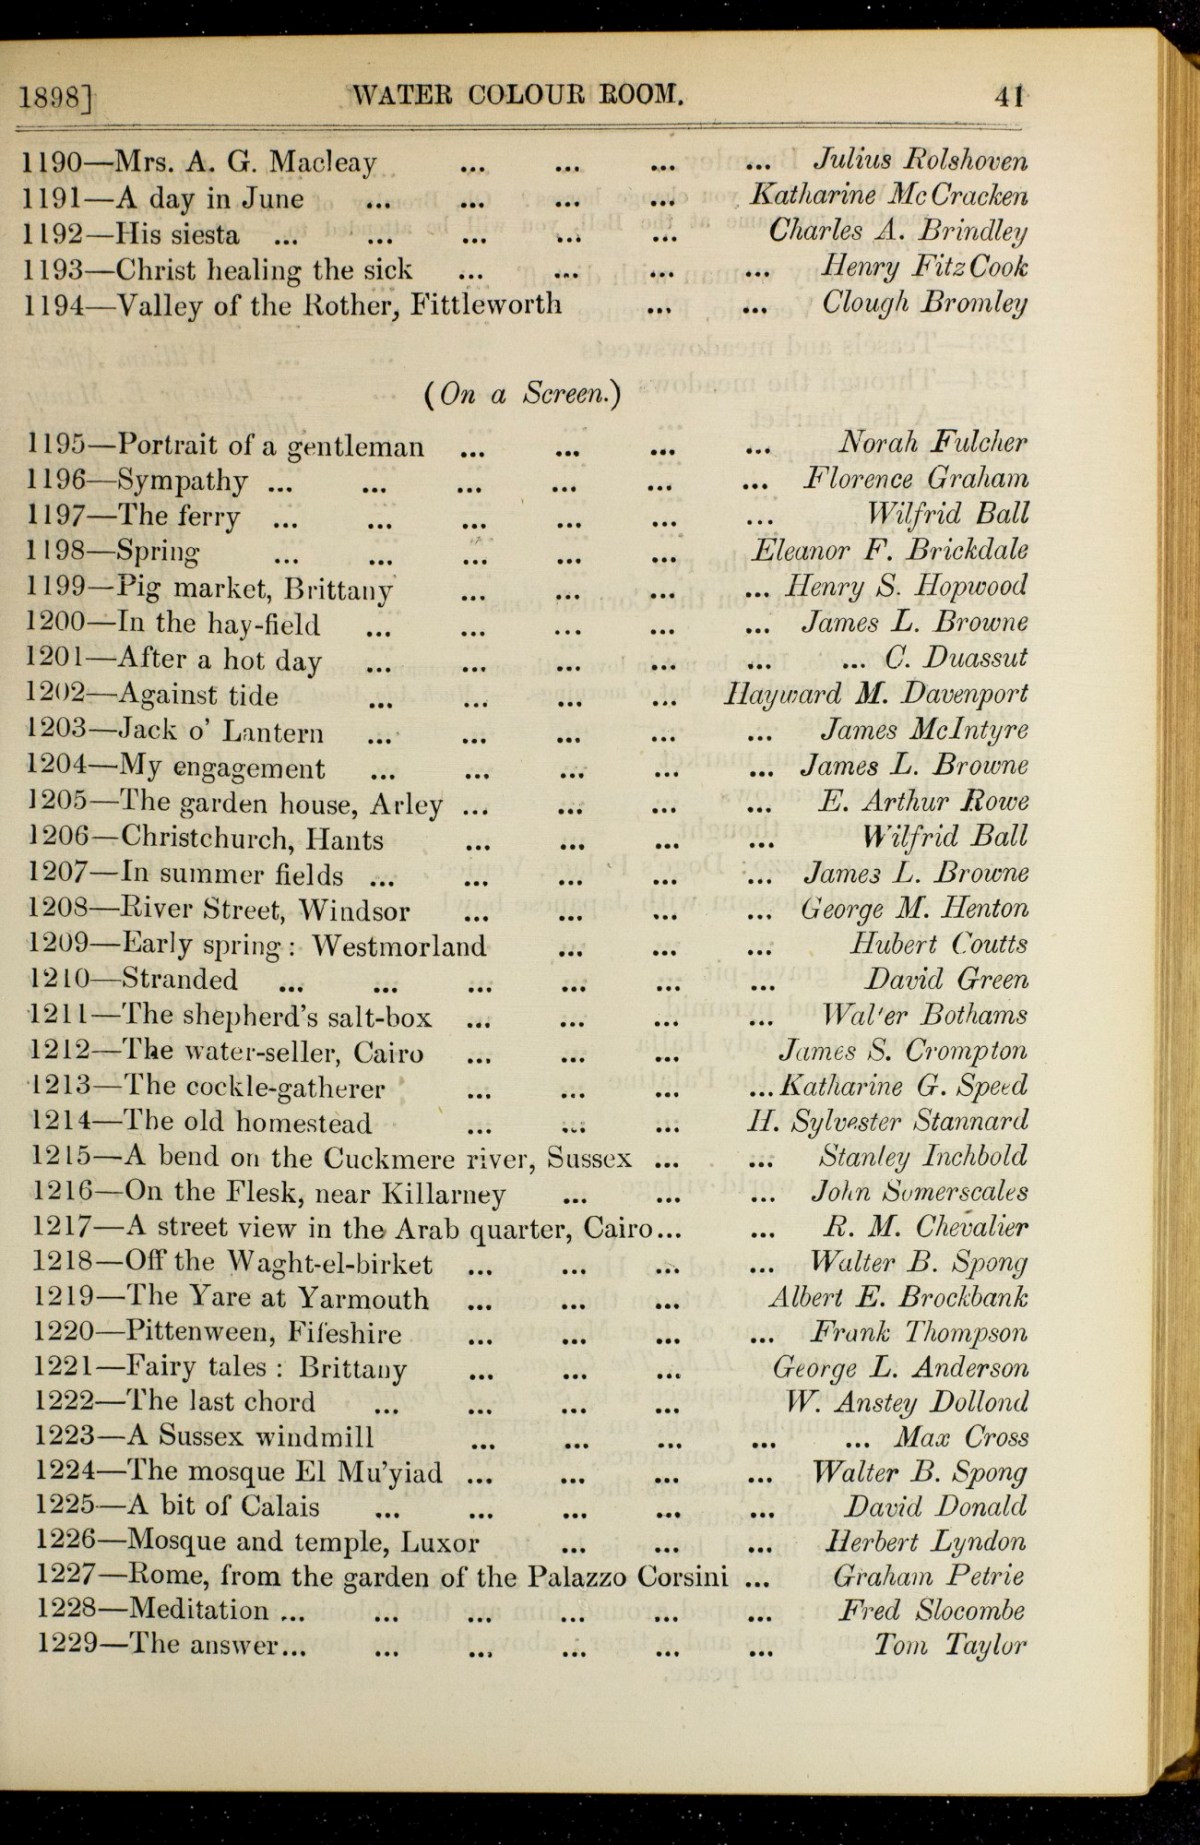 1898] WATER COLOUR ROOM. 41
1190—Mrs. A. G. Macleay ... ... ... ... Julius Rolshoven
1191—A day in June ... ... ... ... Katharine McCracken
1192—His siesta ... ... ... ... ... Charles A. Brindley
1193—Christ healing the sick ... ... ... ... Henry FitzCook
1194—Valley of the Rother, Fittleworth ... ... Clough Bromley
(On a Screen.)
1195—Portrait of a gentleman ... ... ... ... Norah Fulcher
1196—Sympathy ... ... ... ... ... ... Florence Graham
1197—The ferry ... ... ... ... ... ... Wilfrid Ball
1198—Spring ... ... ... ... ... Eleanor F. Brickdale
1199—Pig market, Brittany ... ... ... ... Henry S. Hopwood
1200—In the hay-field ... ... ... ... ... James L. Browne
1201—After a hot day ... ... ... ... ... ... C. Duassut
1202—Against tide ... ... ... ... Hayward M. Davenport
1203—Jack o' Lantern ... ... ... ... ... James McIntyre
1204—My engagement ... ... ... ... ... James L. Browne
1205—The garden house, Arley ... ... ... ... E. Arthur Rowe
1206—Christchurch, Hants ... ... ... ... Wilfrid Ball
1207—In summer fields ... ... ... ... ... James L. Browne
1208—River Street, Windsor ... ... ... ... George M. Henton
1209—Early spring: Westmorland ... ... ... Hubert Coutts
1210—Stranded ... ... ... ... ... ... David Green
1211—The shepherd's salt-box ... ... ... ... Wal'er Bothams
1212—The water-seller, Cairo ... ... ... James S. Crompton
1213—The cockle-gatherer ... ... ... ... Katharine G. Speed
1214—The old homestead ... ... ... H. Sylvester Stannard
1215—A bend on the Cuckmere river, Sussex ... ... Stanley Inchbold
1216—On the Flesk, near Killarney ... ... ... John Somerscales
1217—A street view in the Arab quarter, Cairo... ... R. M. Chevalier
1218—Off the Waght-el-birket ... ... ... ... Walter B. Spong
1219—The Yare at Yarmouth ... ... ... Albert E. Brockbank
1220—Pittenween, Fifeshire ... ... ... ... Frank Thompson
1221—Fairy tales : Brittany ... ... ... George L. Anderson
1222—The last chord ... ... ... ... W. Anstey Dollond
1223—A Sussex windmill ... ... ... ... ... Max Cross
1224—The mosque El Mu'yiad ... ... ... ... Walter B. Spong
1225—A bit of Calais ... ... ... ... ... David Donald
1226—Mosque and temple, Luxor ... ... ... Herbert Lyndon
1227—Rome, from the garden of the Palazzo Corsini ... Graham Petrie
1228—Meditation ... ... ... ... ... ... Fred Slocombe
1229—The answer... ... ... ... ... ... Tom Taylor